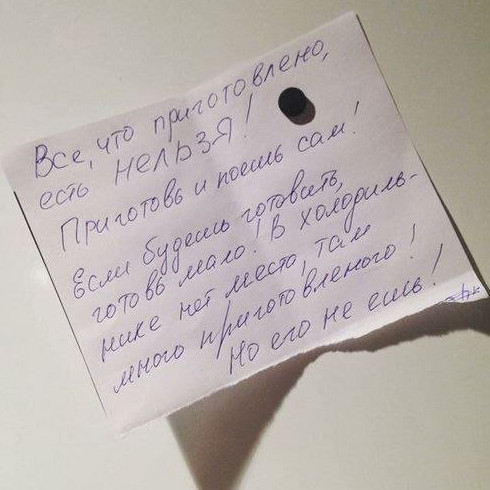 Все, что приготовлено,
есть НЕЛЬЗЯ!
Приготовь и поешь сам!
Если будешь готовить,
готовь мало! В холодиль-
нике нет место, там
много приготовленого!
Но его не ешь!